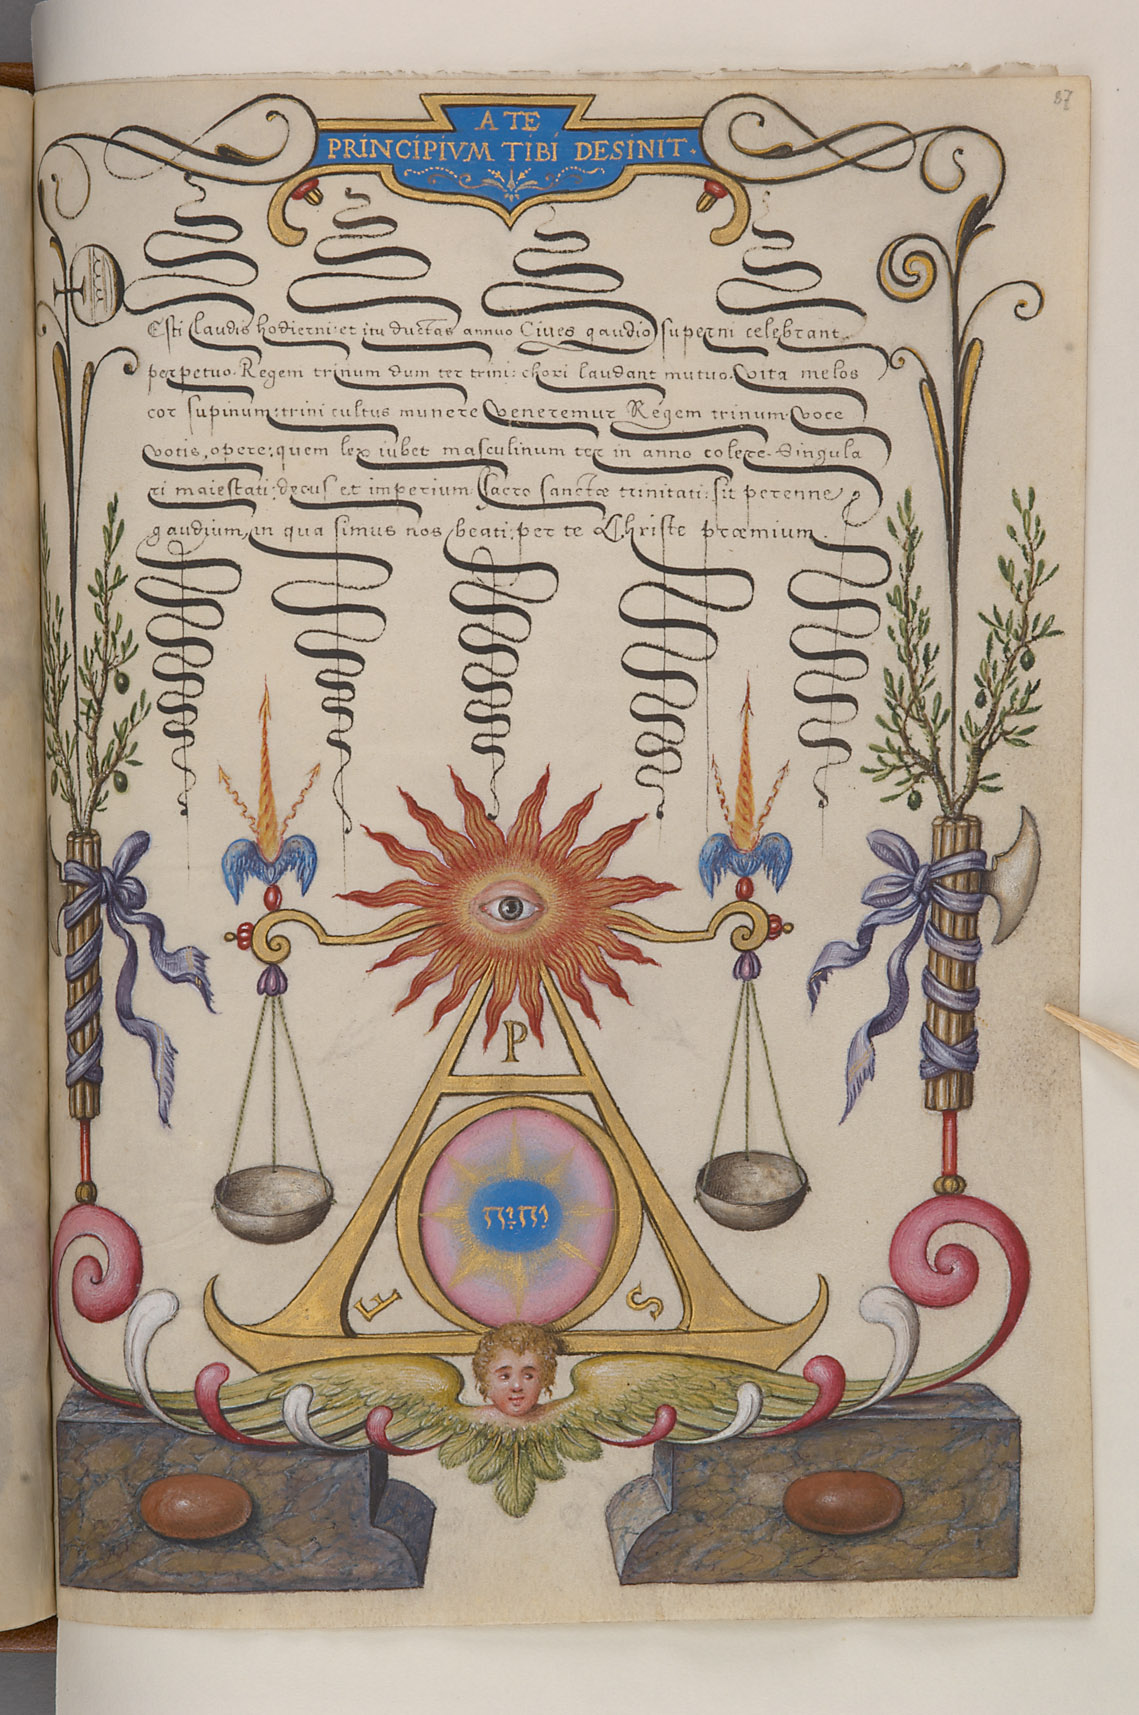 87
A TE
PRINCIPIVM TIBI DESINIT.
Esti laudis hodierni: et itu ductas annuo Ciues gaudio superni celebrant
perpetuo. Regem trinum dum ter trini: chori laudant mutuo. Vita melos
cor supinum: trini cultus munere Veneremur Regem trinum. Voce
votis, opere: quem lex iubet masculinum ter in anno colere. Singula
ri maiestati: decus et imperium. Sacro sanctæ trinitati: sit perenne
gaudium, in qua simus nos beati: per te Christe præmium.
P
יהוה
F S